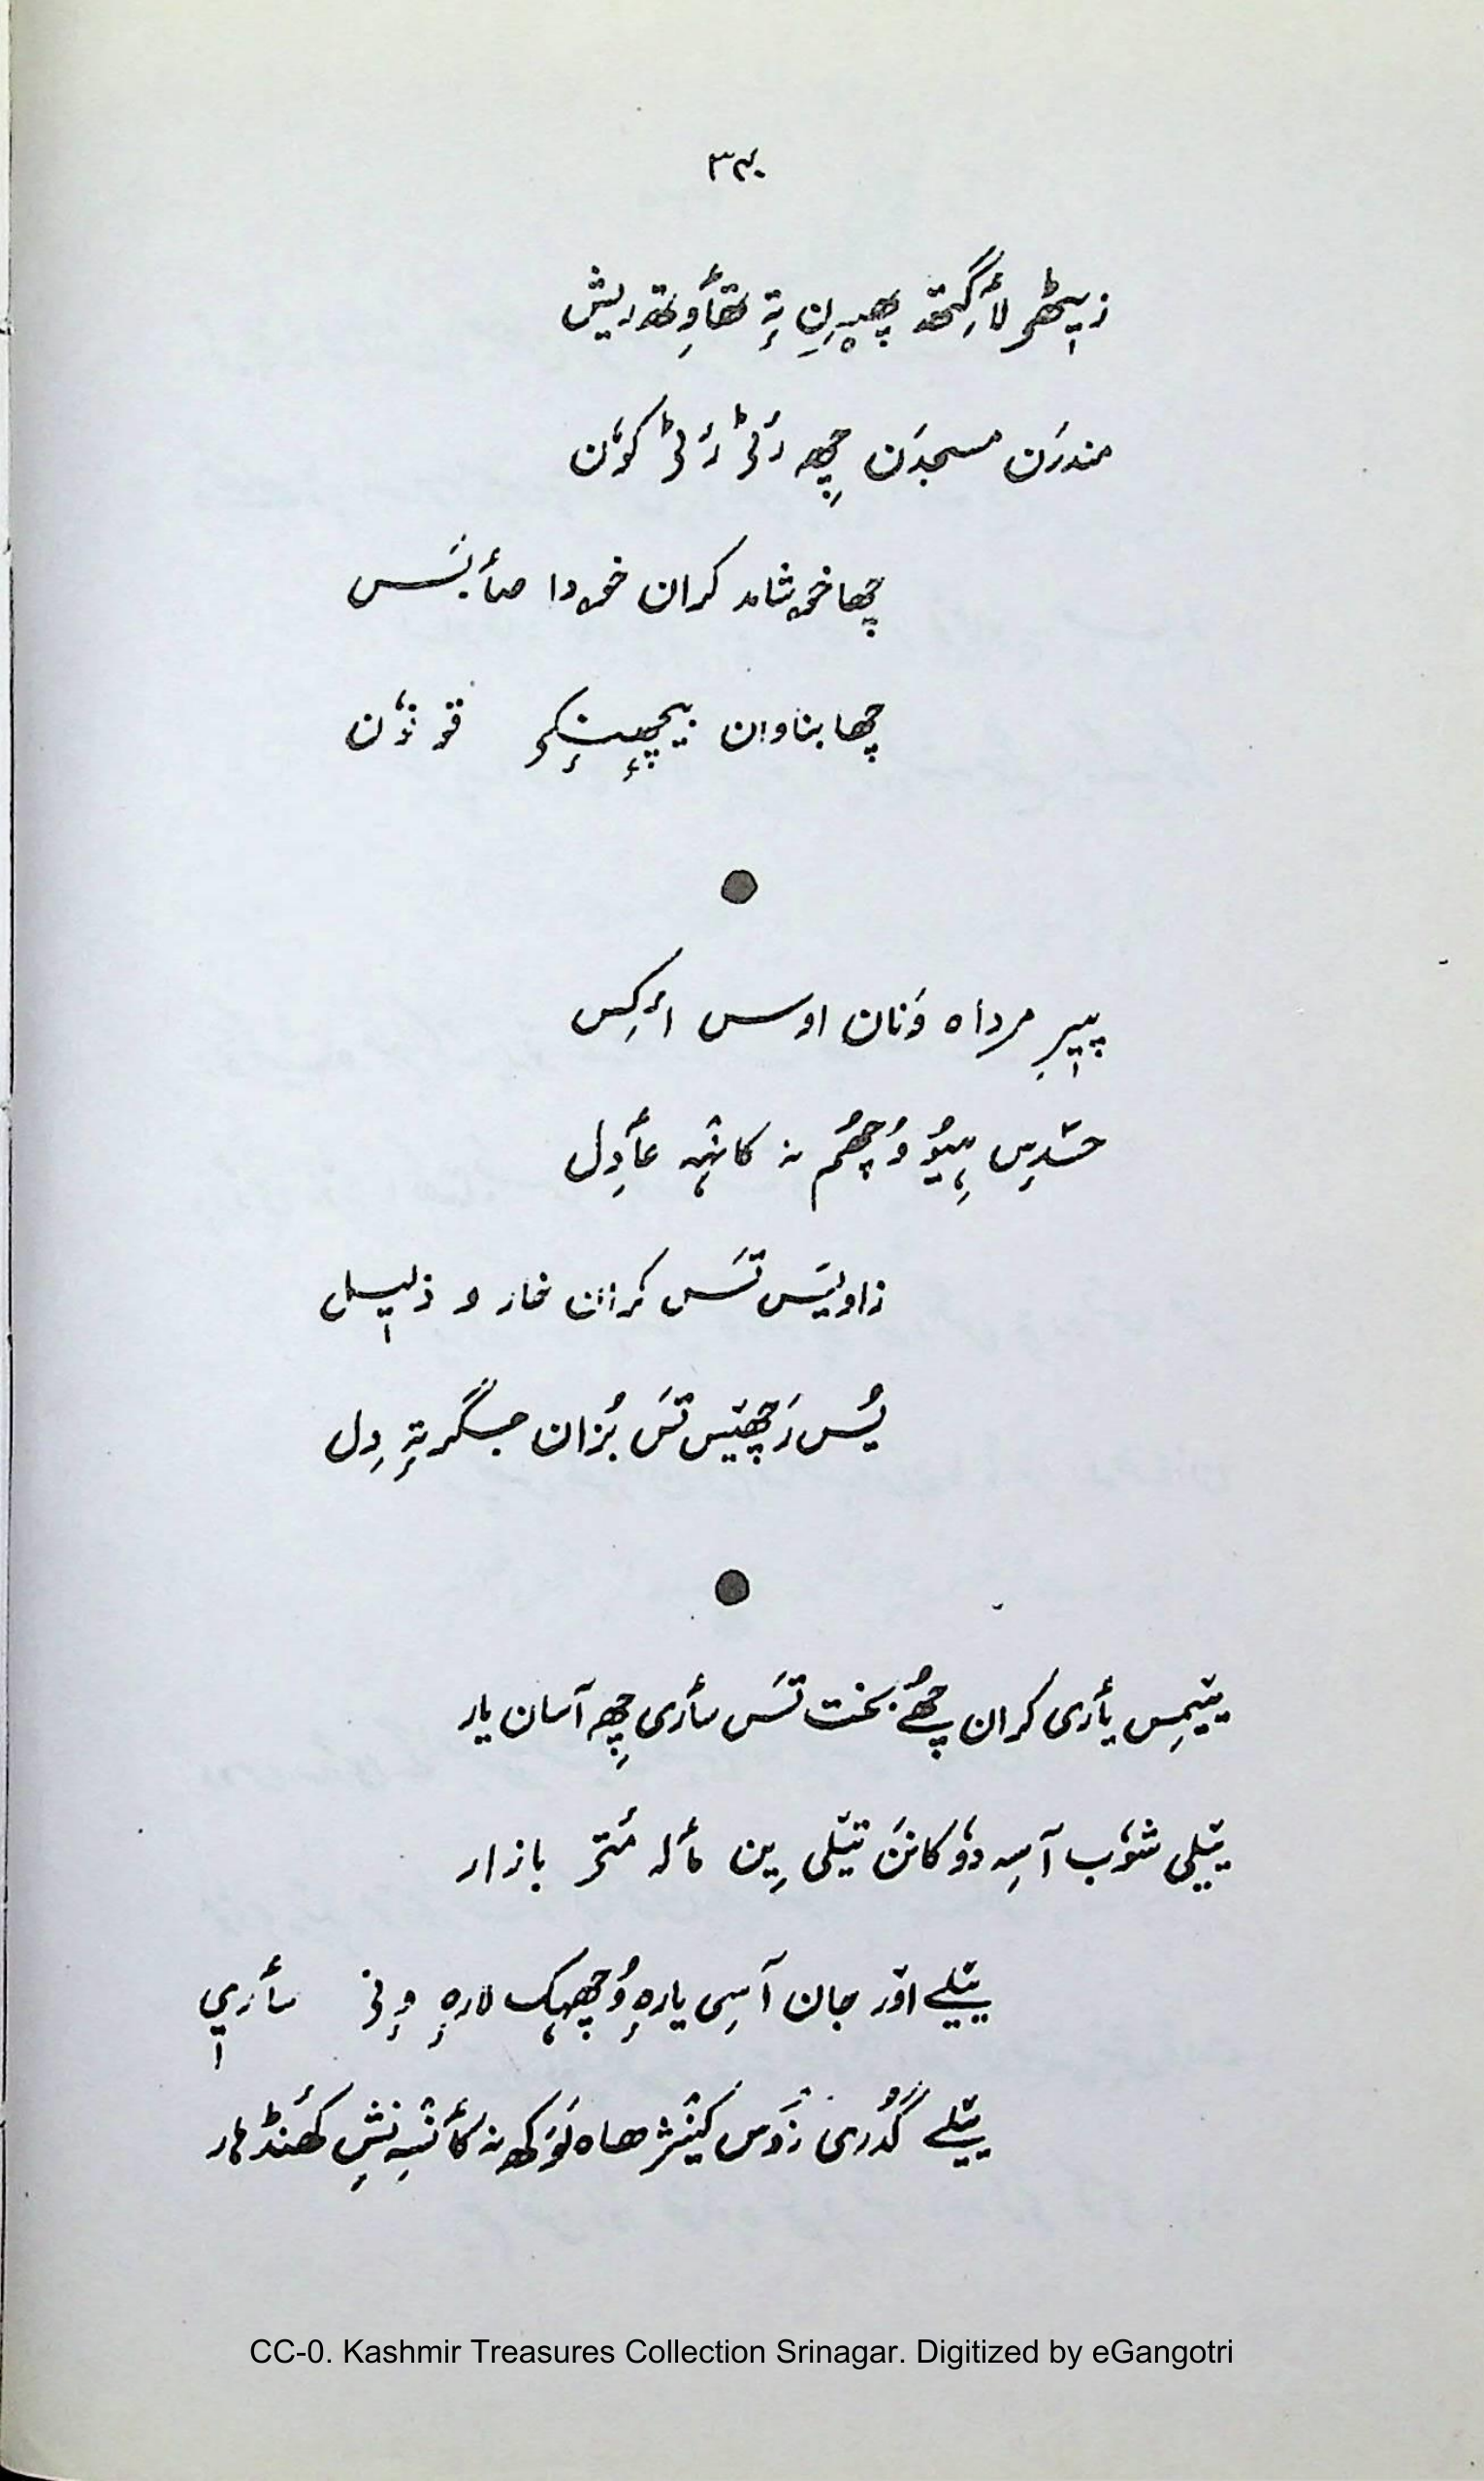 ۳۴۰
زیٖٹھۍ لٲگِتھ پھیرنِ تہٕ تھٲوِتھ ریش
مندرَن مسجدَن چِھ رٔٹۍ رٔٹۍ کوٗن
چھا خوشامد کران خودا صٲبَس
چھا بناوان بیچھٕنٕکۍ قونوٗن
پیٖرِ مرداہ وَنان اوس أکِس
حسَدِس ہِیوٗ وُچھُم نہ کانٛہہ عٲدِل
زاویَس تَس کران خار و ذلیٖل
یُس رَچھیَس تَس بُزان جگر تہٕ دِل
یَیمِس یٲری کران چُھے بخت تَس سٲری چِھ آسان یار
یَیلی شوٗب آسہِ دوٗکانَن تَیلی یِن مٲلہ مٔتۍ بازار
یَیلے اوٚر جان آسی یارہٕ وُچھہکھ لارہٕ وٕنۍ سٲریٖ
یَیلے گُدری زَوس کینٛژھاہ لَوکھ نہ کٲنٛسہِ نِشِ کھٔنڈہار
CC-0. Kashmir Treasures Collection Srinagar. Digitized by eGangotri